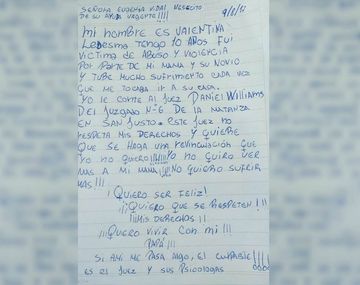 SEÑORA EUGENIA VIDAL NECESITO
DE SU AYUDA URGENTE!!!!
MI NOMBRE ES VALENTINA
LEDESMA TENGO 10 AÑOS FUI
VICTIMA DE ABUSO Y VIOLENCIA
POR PARTE DE MI MAMA Y SU NOVIO
Y TUBE MUCHO SUFRIMIENTO CADA VEZ
QUE ME TOCABA IR A SU CASA.
YO LE CONTE AL JUEZ DANIEL WILLIAMS
DEL JUZGADO N°6 DE LA MATANZA
EN SAN JUSTO. ESTE JUEZ NO
RESPETA MIS DERECHOS Y QUIERE
QUE SE HAGA UNA REVINCULACION QUE
YO NO QUIERO!!!!! YO NO QUIRO VER
MAS A MI MAMA!!!! NO QUIERO SUFRIR
MAS!!!
¡QUIERO SER FELIZ!
¡¡QUIERO QUE SE RESPETEN!!!
¡¡MIS DERECHOS!!
¡¡QUIERO VIVIR CON MI!!!
PAPÁ!!!
SI AMI ME PASA ALGO, EL CULPABLE!!!
ES EL JUEZ Y SUS PSICOLOGAS